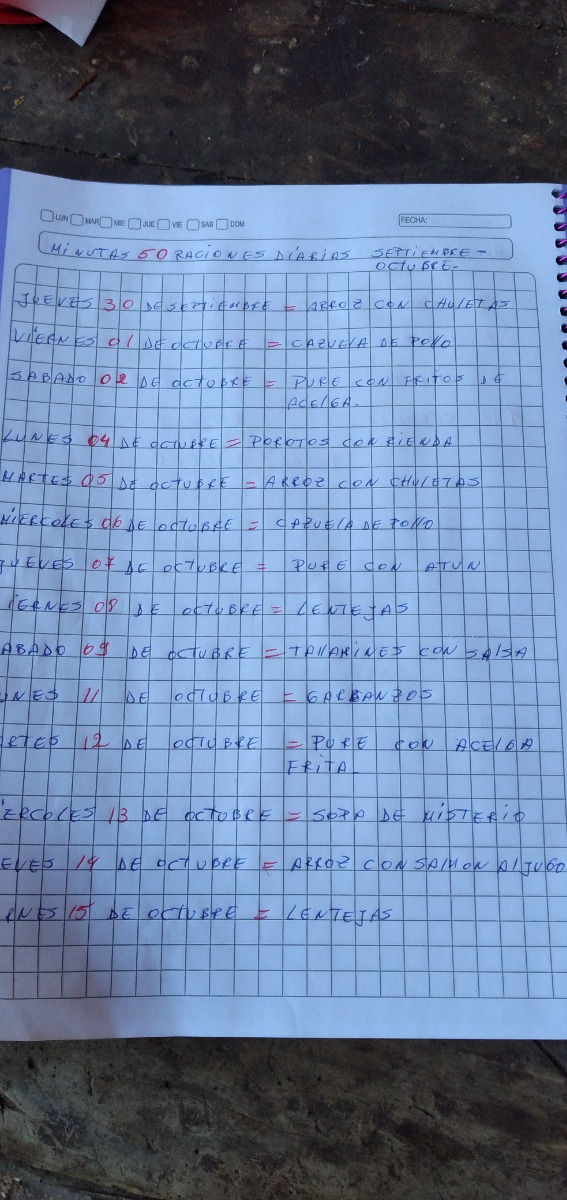 LUN MAR MIE JUE VIE SAB DOM
FECHA:
MINUTAS 50 RACIONES DIARIAS SETTIEMBRE -
OCTUBRE-
JUEVES 30 DE SEPTIEMBRE = ARROZ CON CHULETAS
VIERNES 01 DE OCTUBRE = CAZUELA DE POLLO
SABADO 02 DE OCTUBRE = PURE CON FRITOS DE
ACELGA.
LUNES 04 DE OCTUBRE = POROTOS CON RIENDA
MARTES 05 DE OCTUBRE = ARROZ CON CHULETAS
MIERCOLES 06 DE OCTUBRE = CAZUELA DE POLLO
JUEVES 07 DE OCTUBRE = PURE CON ATUN
IERNES 08 DE OCTUBRE = LENTEJAS
ABADO 09 DE OCTUBRE = TALLARINES CON SALSA
UNES 11 DE OCTUBRE = GARBANZOS
RTES 12 DE OCTUBRE = PURE CON ACELGA
FRITA-
IERCOLES 13 DE OCTUBRE = SOPA DE MISTERIO
EVES 14 DE OCTUBRE = ARROZ CON SALMON AL JUGO
RNES 15 DE OCTUBRE = LENTEJAS